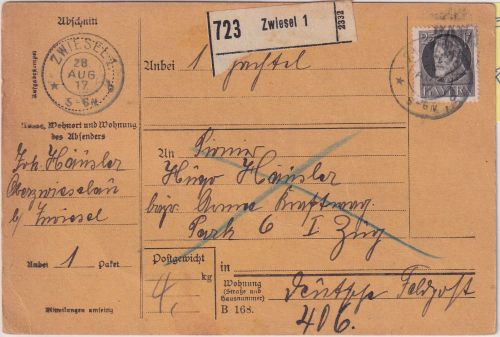 Abschnitt
Aufgabestempel
ZWIESEL 1.
28
AUG
17
5-6N.
Name, Wohnort und Wohnung
des Absenders
Joh. Häusler
Oberzwieselau
b/ Zwiesel
Anbei 1 Paket
Mitteilungen umseitig
723 Zwiesel 1
2332
Anbei 1 Pachtel
25
BAYERN
5-6N.
An Pionier
Hugo Häusler
bayr. Armee Kraftwag.
Park 6 I Zug
Postgewicht
4, kg
in
Wohnung
(Straße und
Hausnummer)
B 168.
Deutsche Feldpost
406.